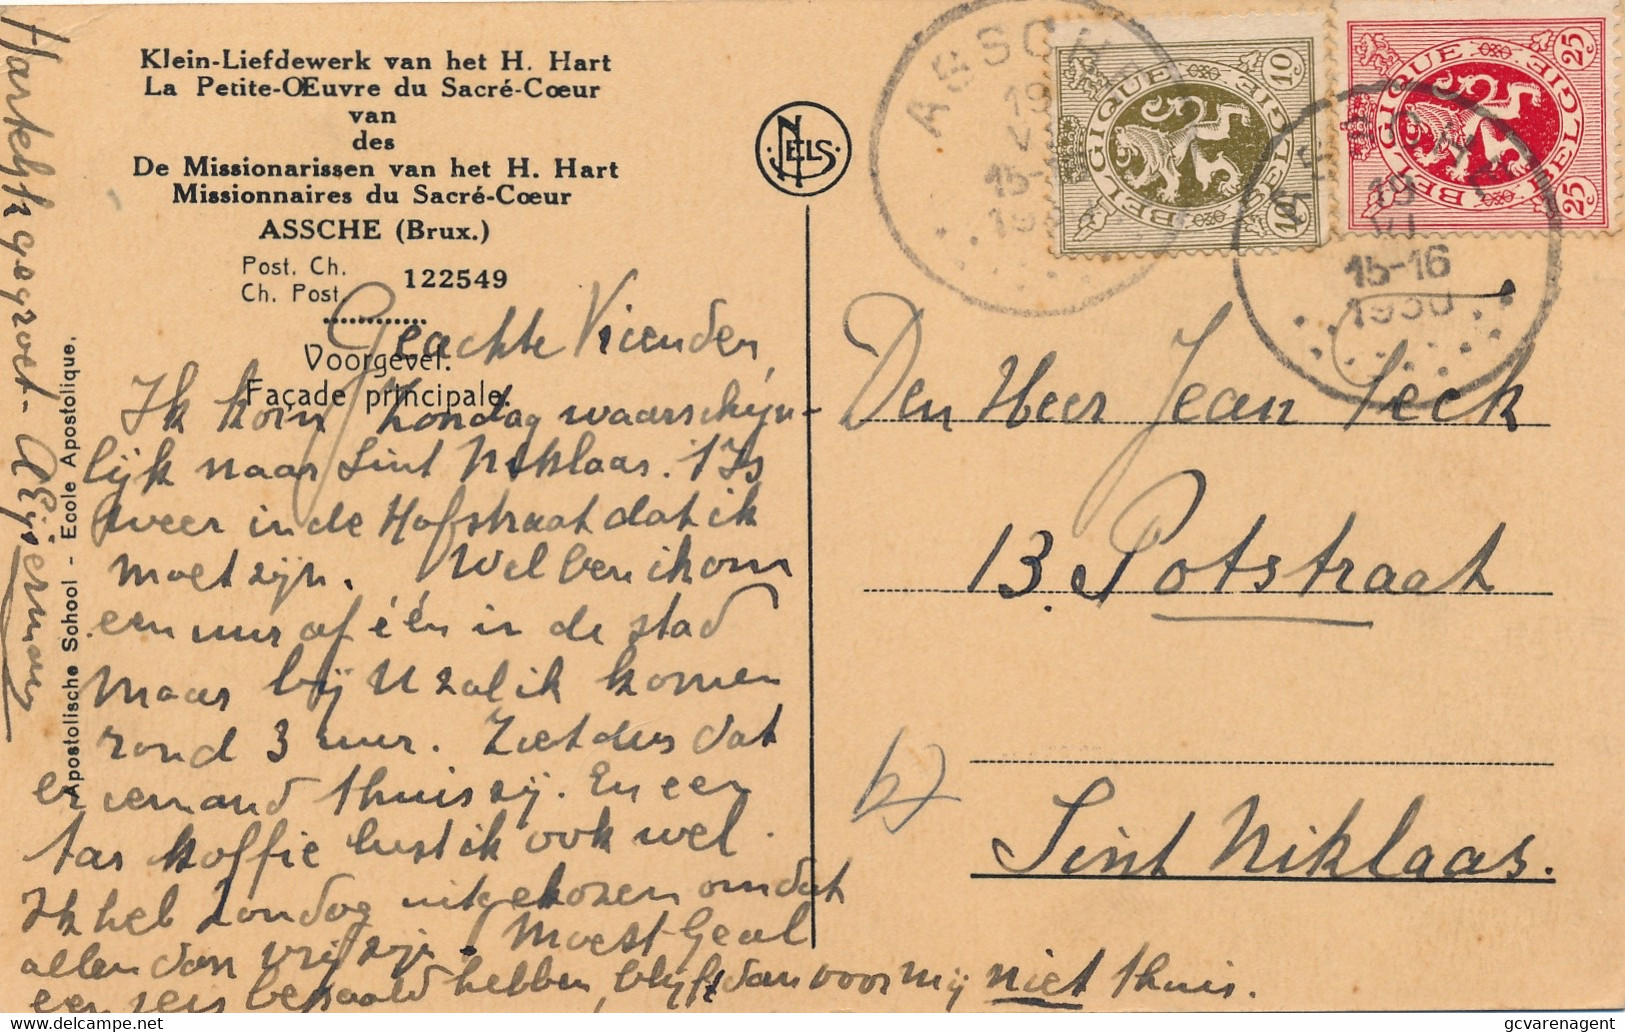 Klein-Liefdewerk van het H. Hart
La Petite-Œuvre du Sacré-Cœur
van
des
De Missionarissen van het H. Hart
Missionnaires du Sacré-Cœur
ASSCHE (Brux.)
Post. Ch.
Ch. Post. 122549
Voorgevel.
Façade principale.
Apostolische School - Ecole Apostolique.
NELS
Geachte Vrienden,
Ik kom Zondag waarschijn-
lijk naar Sint Niklaas. 't Is
weer in de Hofstraat dat ik
moet zijn. Wel ben ik om
een uur of één in de stad
maar bij U zal ik komen
rond 3 uur. Ziet dus dat
er iemand thuis zij. En een
tas koffie lust ik ook wel.
Ik heb Zondag uitgekozen omdat
allen dan vrij zijn. Moest Geal
een reis bepaald hebben, blijft dan voor mij niet thuis.
Hartelijk gegroet.
ASSCHE
19
15-
BELGIQUE 10
BELGIË 10
BELGIQUE 25
BELGIË 25
ASSCHE
19
VII
15-16
1930
Den Heer Jean Peck
13. Potstraat
b)
Sint Niklaas.
gcvarenagent
delcampe.net